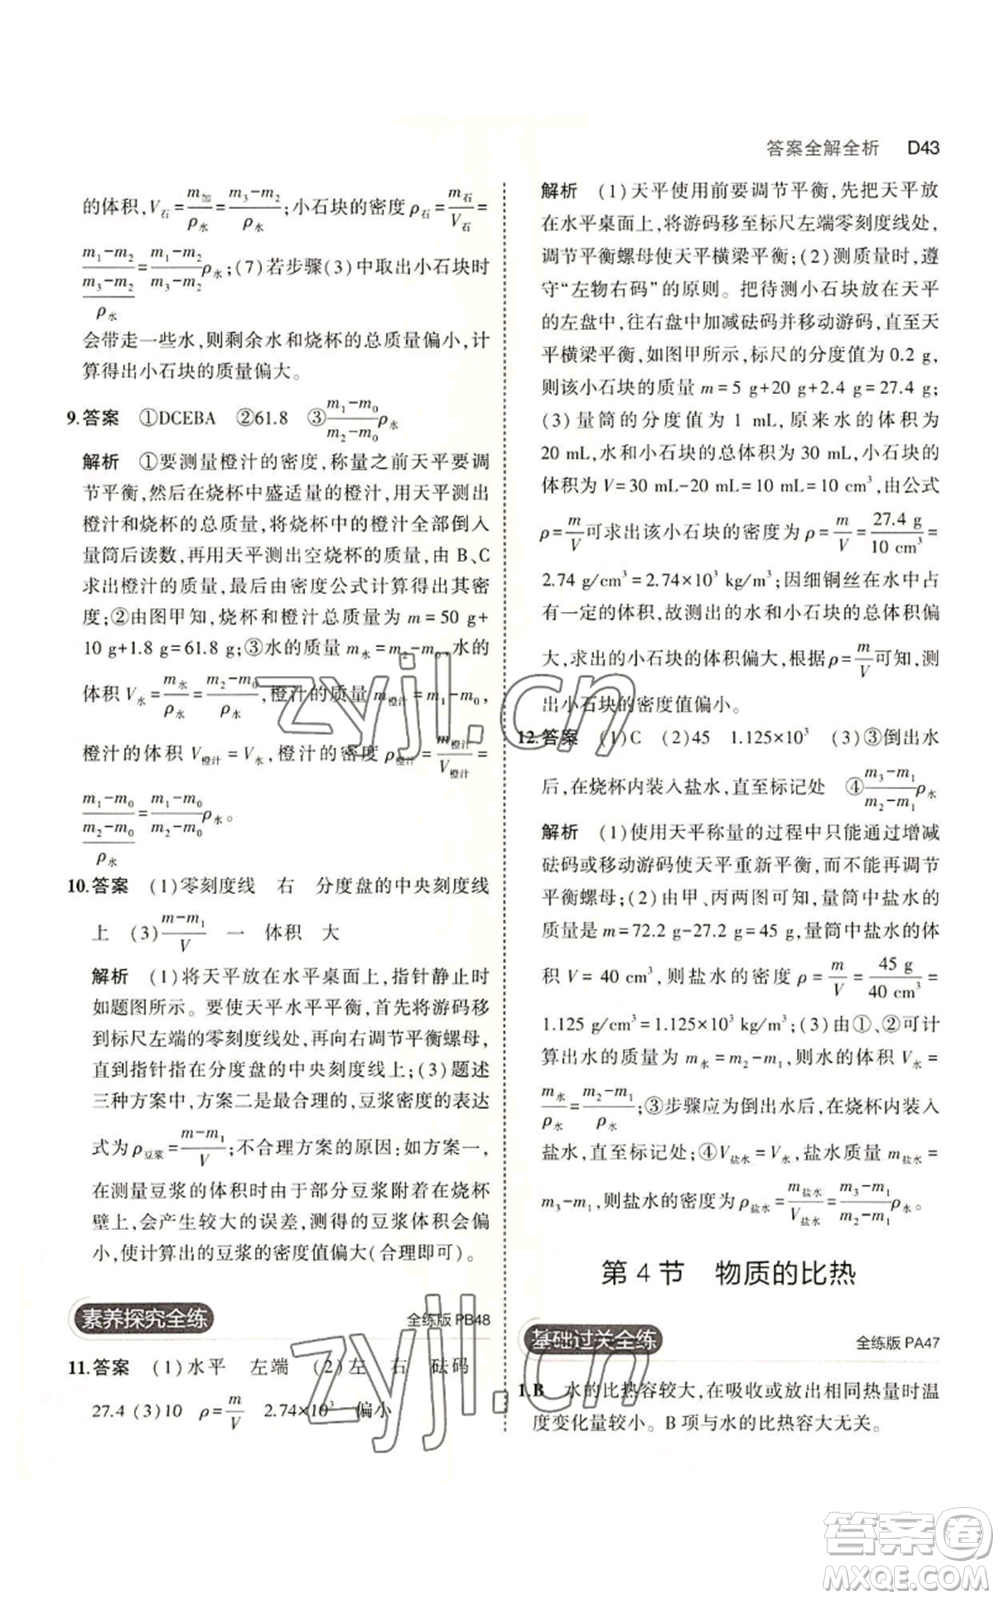 答案全解全析 D43
的体积,V石=m加/ρ水=(m₃-m₂)/ρ水;小石块的密度ρ石=m石/V石=
(m₁-m₂)/((m₃-m₂)/ρ水)=(m₁-m₂)/(m₃-m₂)ρ水;(7)若步骤(3)中取出小石块时
会带走一些水,则剩余水和烧杯的总质量偏小,计
算得出小石块的质量偏大。
9.答案 ①DCEBA ②61.8 ③(m₁-m₀)/(m₂-m₀)ρ水
解析 ①要测量橙汁的密度,称量之前天平要调
节平衡,然后在烧杯中盛适量的橙汁,用天平测出
橙汁和烧杯的总质量,将烧杯中的橙汁全部倒入
量筒后读数,再用天平测出空烧杯的质量,由 B、C
求出橙汁的质量,最后由密度公式计算得出其密
度;②由图甲知,烧杯和橙汁总质量为 m=50 g+
10 g+1.8 g=61.8 g;③水的质量 m水=m₂-m₀,水的
体积 V水=m水/ρ水=(m₂-m₀)/ρ水,橙汁的质量 m橙汁=m₁-m₀,
橙汁的体积 V橙汁=V水,橙汁的密度 ρ橙汁=m橙汁/V橙汁=
(m₁-m₀)/((m₂-m₀)/ρ水)=(m₁-m₀)/(m₂-m₀)ρ水。
10.答案 (1)零刻度线 右 分度盘的中央刻度线
上 (3)(m-m₁)/V 一 体积 大
解析 (1)将天平放在水平桌面上,指针静止时
如题图所示。要使天平水平平衡,首先将游码移
到标尺左端的零刻度线处,再向右调节平衡螺母,
直到指针指在分度盘的中央刻度线上;(3)题述
三种方案中,方案二是最合理的,豆浆密度的表达
式为 ρ豆浆=(m-m₁)/V;不合理方案的原因:如方案一,
在测量豆浆的体积时由于部分豆浆附着在烧杯
壁上,会产生较大的误差,测得的豆浆体积会偏
小,使计算出的豆浆的密度值偏大(合理即可)。
素养探究全练 全练版 PB48
11.答案 (1)水平 左端 (2)左 右 砝码
27.4 (3)10 ρ=m/V 2.74×10³ 偏小
解析 (1)天平使用前要调节平衡,先把天平放
在水平桌面上,将游码移至标尺左端零刻度线处,
调节平衡螺母使天平横梁平衡;(2)测质量时,遵
守“左物右码”的原则。把待测小石块放在天平
的左盘中,往右盘中加减砝码并移动游码,直至天
平横梁平衡,如图甲所示,标尺的分度值为 0.2 g,
则该小石块的质量 m=5 g+20 g+2.4 g=27.4 g;
(3)量筒的分度值为 1 mL,原来水的体积为
20 mL,水和小石块的总体积为 30 mL,小石块
的体积为 V=30 mL-20 mL=10 mL=10 cm³,由公式
ρ=m/V可求出该小石块的密度为 ρ=m/V=27.4 g/10 cm³=
2.74 g/cm³=2.74×10³ kg/m³;因细铜丝在水中占
有一定的体积,故测出的水和小石块的总体积偏
大,求出的小石块的体积偏大,根据 ρ=m/V可知,测
出小石块的密度值偏小。
12.答案 (1)C (2)45 1.125×10³ (3)③倒出水
后,在烧杯内装入盐水,直至标记处 ④(m₃-m₁)/(m₂-m₁)ρ水
解析 (1)使用天平称量的过程中只能通过增减
砝码或移动游码使天平重新平衡,不能再调节
平衡螺母;(2)由甲、丙两图可知,量筒中盐水的
质量是 m=72.2 g-27.2 g=45 g,量筒中盐水的体
积 V=40 cm³,则盐水的密度 ρ=m/V=45 g/40 cm³=
1.125 g/cm³=1.125×10³ kg/m³;(3)由①、②可计
算出水的质量为 m水=m₂-m₁,则水的体积为 V水=
m水/ρ水=(m₂-m₁)/ρ水;③步骤应为倒出水后,在烧杯内装入
盐水,直至标记处;④V盐水=V水,盐水质量 m盐水=
m₃-m₁,则盐水的密度为 ρ盐水=m盐水/V盐水=(m₃-m₁)/(m₂-m₁)ρ水。
第 4 节 物质的比热
基础过关全练 全练版 PA47
1.B 水的比热容较大,在吸收或放出相同热量时温
度变化量较小。B 项与水的比热容大无关。
zyjl.cn
答案圈
MXQE.COM